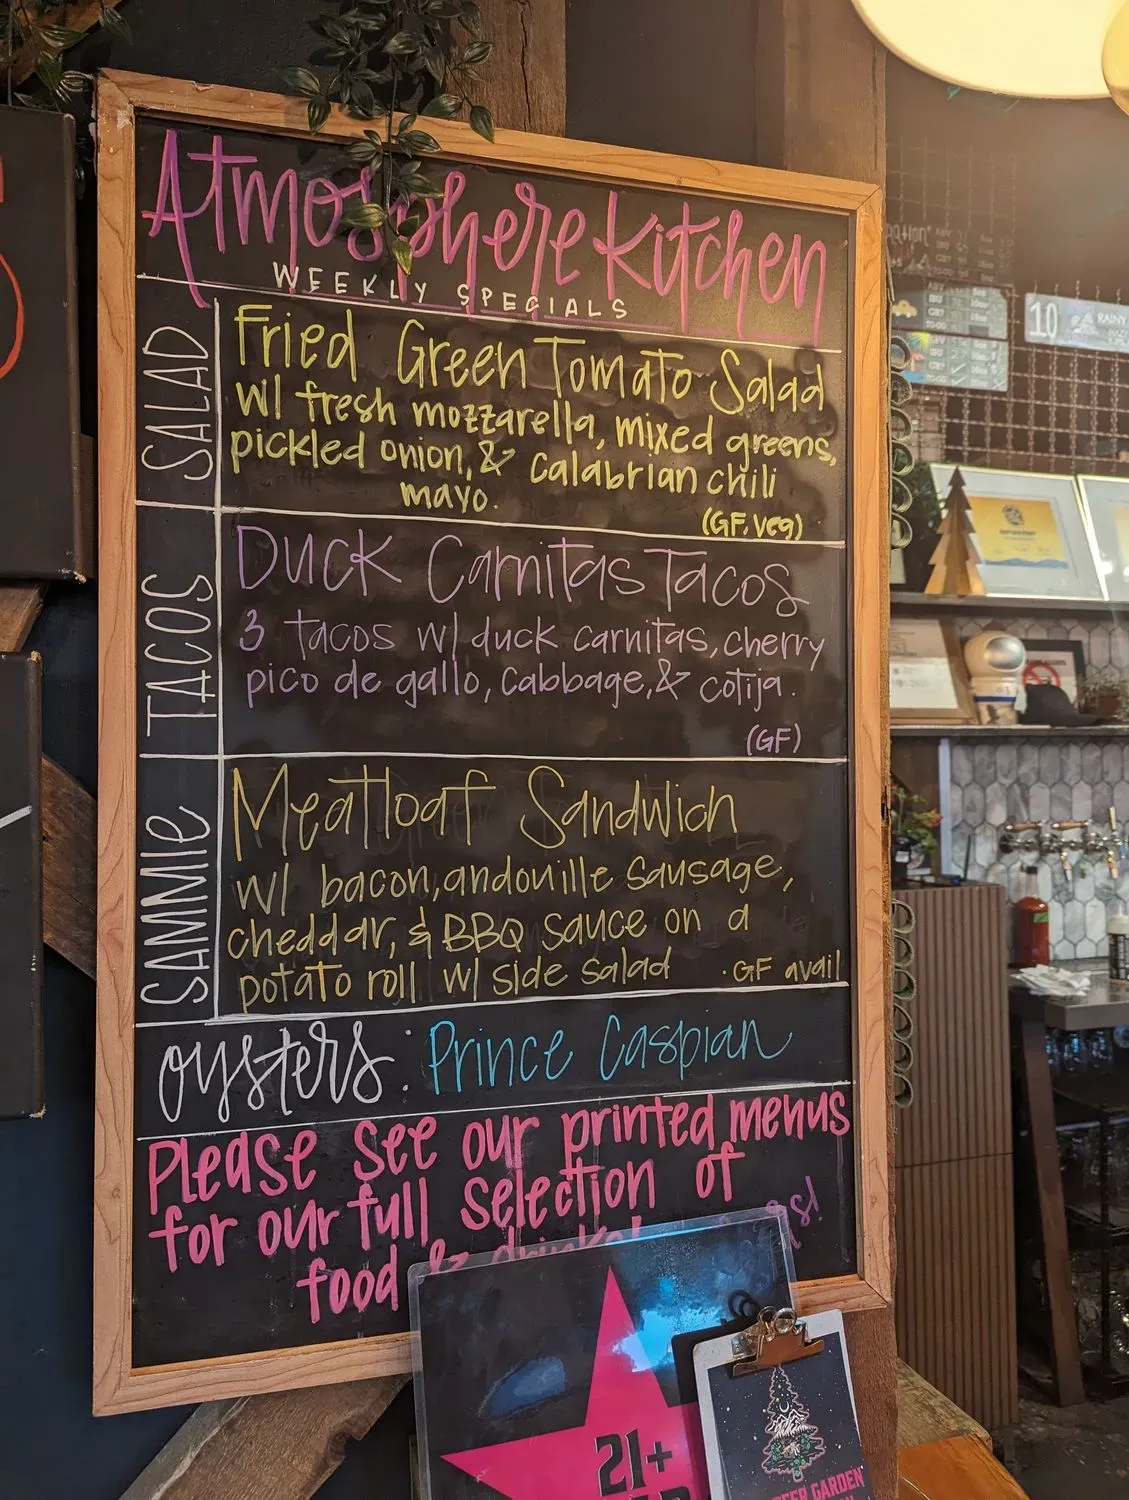 Atmosphere Kitchen
WEEKLY SPECIALS
SALAD
Fried Green Tomato Salad
w/ fresh mozzarella, mixed greens,
pickled onion, & calabrian chili
mayo.
(GF, veg)
TACOS
Duck Carnitas Tacos
3 tacos w/ duck carnitas, cherry
pico de gallo, cabbage, & cotija.
(GF)
SAMMIE
Meatloaf Sandwich
w/ bacon, andouille sausage,
cheddar, & BBQ sauce on a
potato roll w/ side salad · GF avail
oysters: Prince Caspian
Please see our printed menus
for our full selection of
food & drinks!
21+
BEER GARDEN
10
RAINY